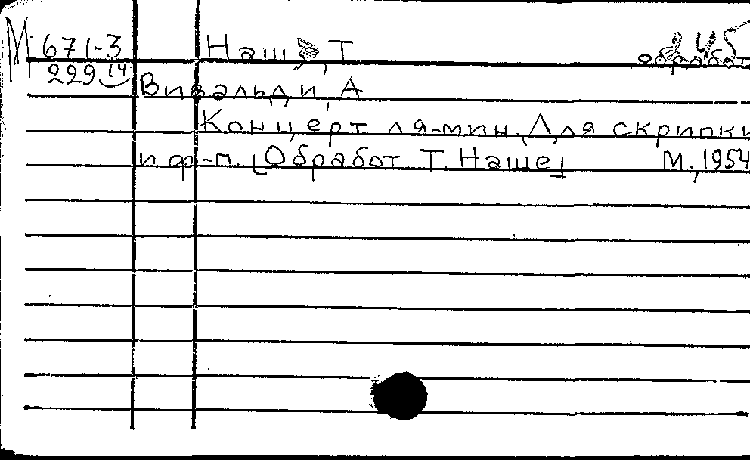 М 671-3 Наш, Т. обработ
229 14
Вивальди, А
Концерт ля-мин. Для скрипки
и ф-п. [Обработ Т. Наше] М., 1954